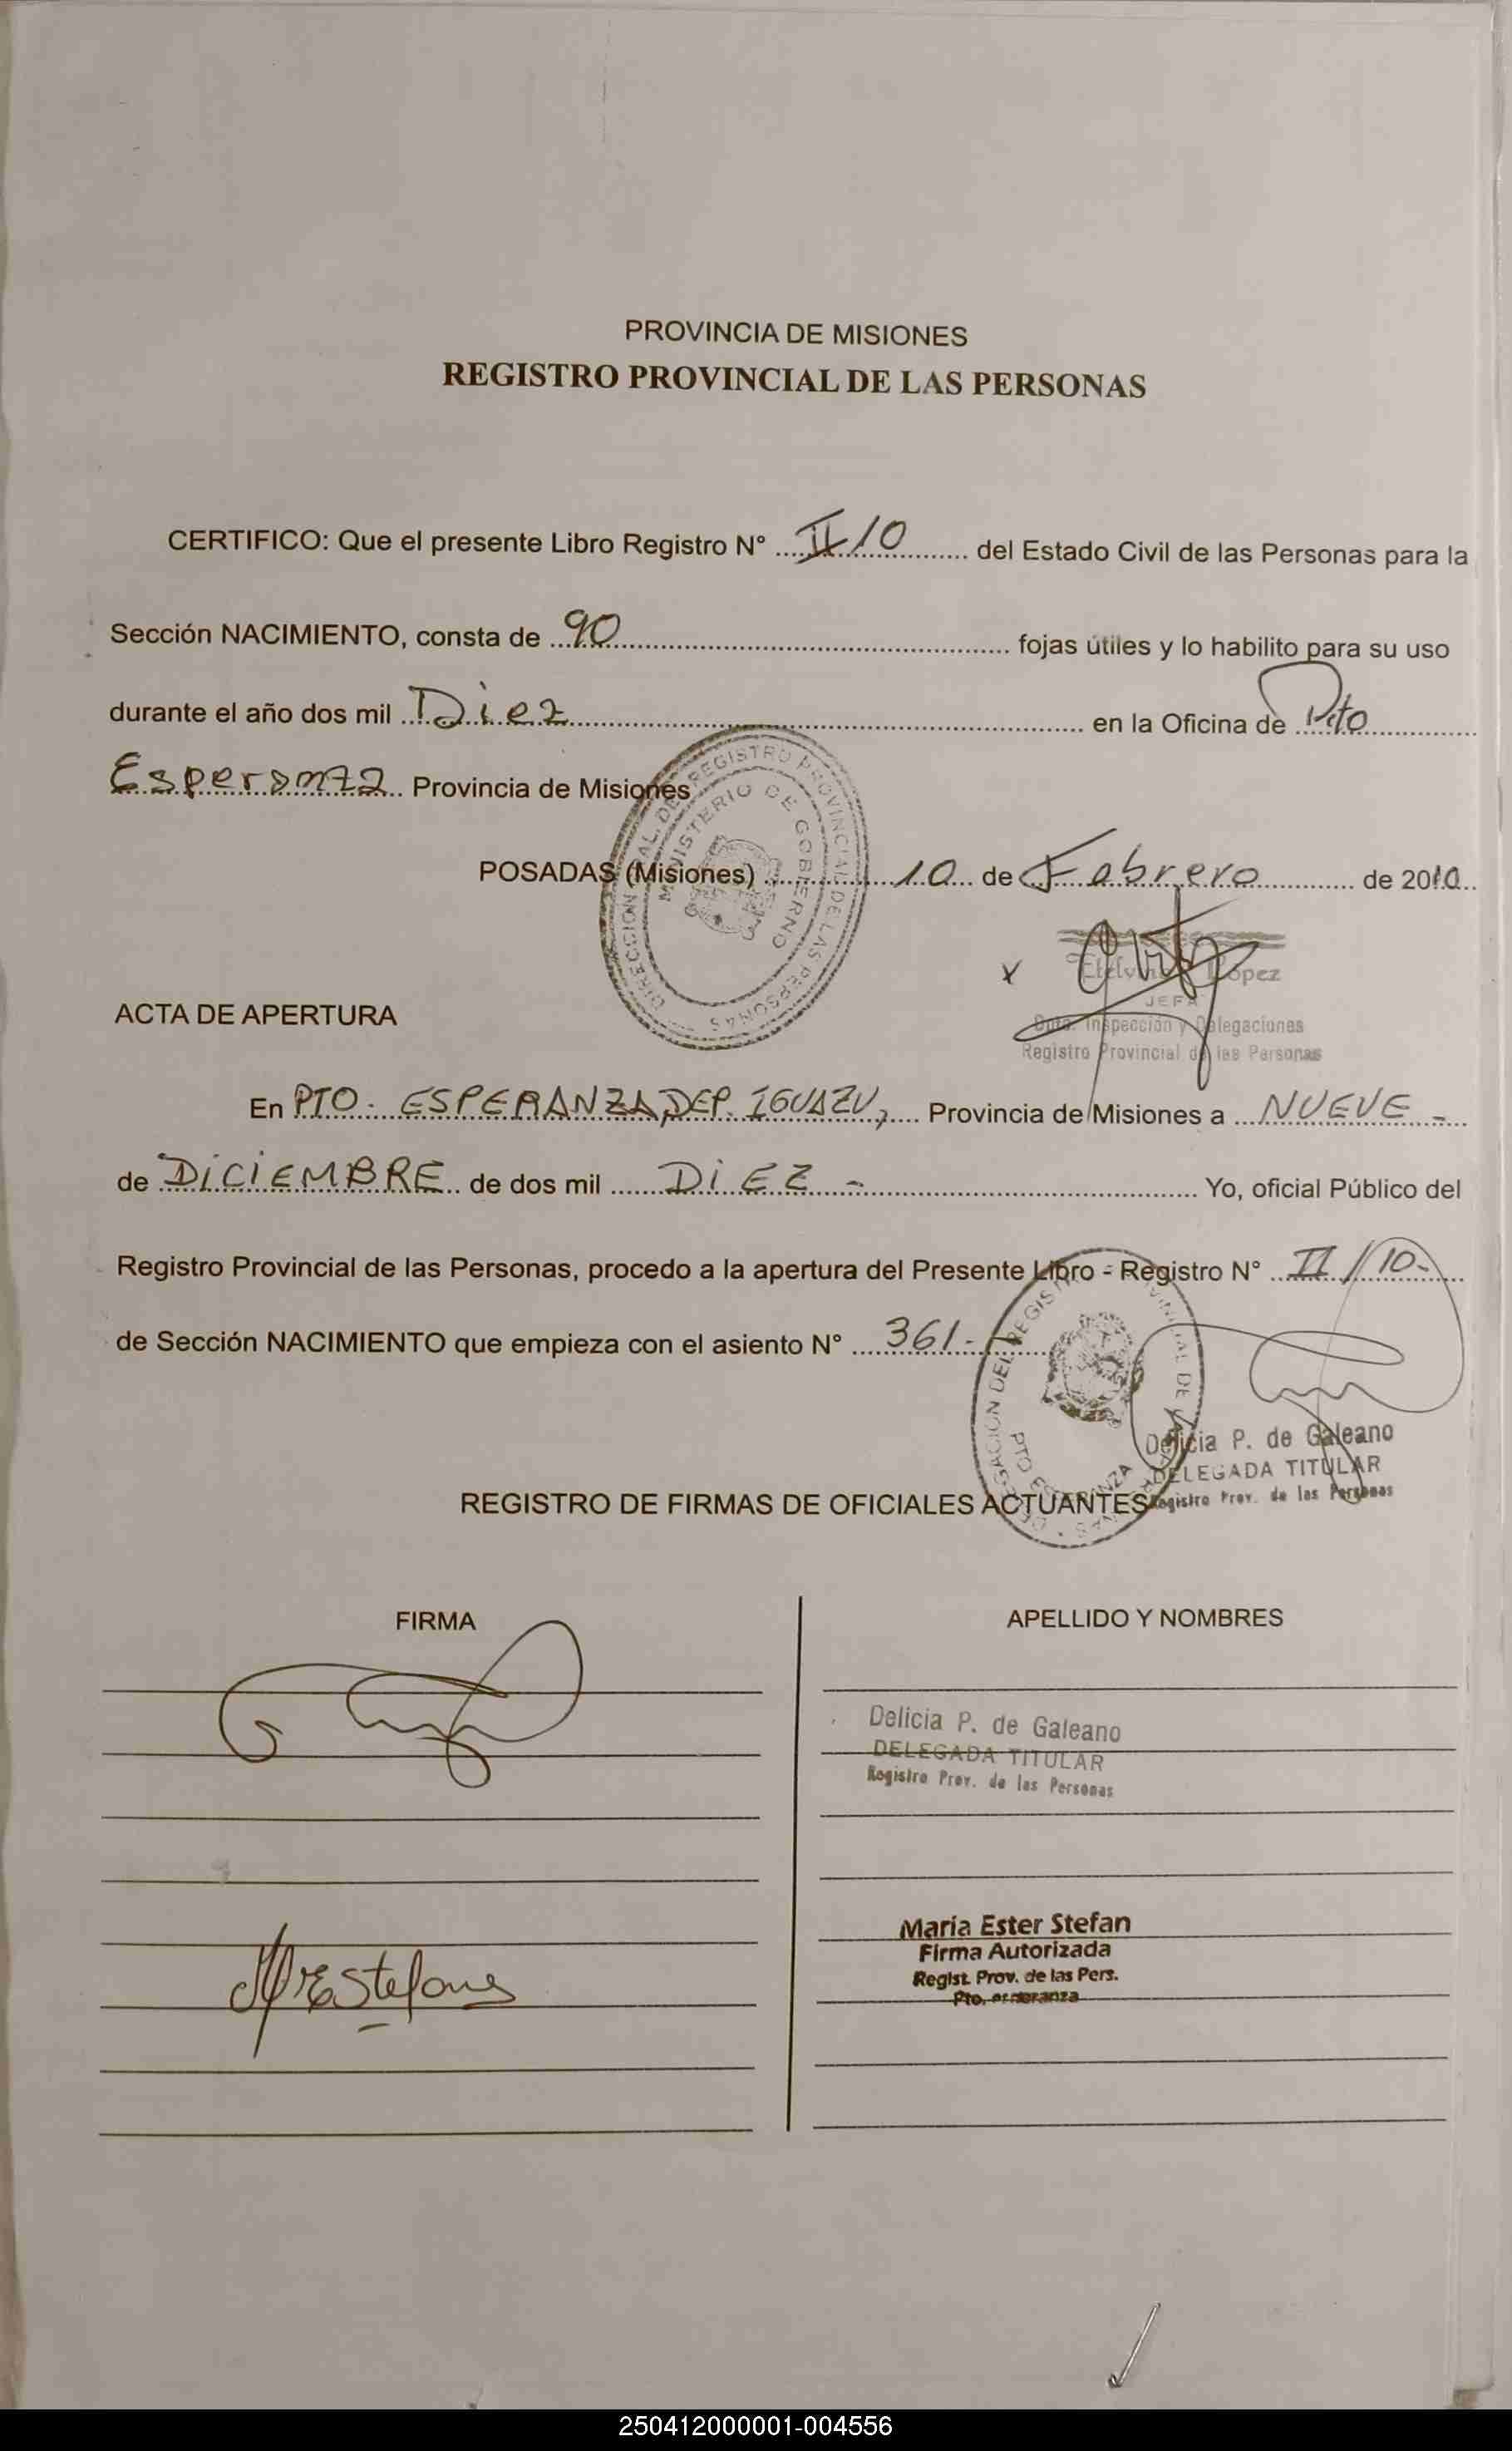 PROVINCIA DE MISIONES
REGISTRO PROVINCIAL DE LAS PERSONAS
CERTIFICO: Que el presente Libro Registro N° II/10 del Estado Civil de las Personas para la
Sección NACIMIENTO, consta de 90 fojas útiles y lo habilito para su uso
durante el año dos mil Diez en la Oficina de Pto
Esperanza Provincia de Misiones
DIRECCION GRAL. DEL REGISTRO PROVINCIAL DE LAS PERSONAS
MINISTERIO DE GOBIERNO
POSADAS (Misiones) 10 de Febrero de 2010
López
JEFA
Dpto. Inspección y Delegaciones
Registro Provincial de las Personas
ACTA DE APERTURA
En PTO. ESPERANZA, DEP. IGUAZU, Provincia de Misiones a NUEVE -
de DICIEMBRE de dos mil DIEZ - Yo, oficial Público del
Registro Provincial de las Personas, procedo a la apertura del Presente Libro - Registro N° II/10-
de Sección NACIMIENTO que empieza con el asiento N° 361.-
Delicia P. de Galeano
DELEGADA TITULAR
Registro Prov. de las Personas
PTO ESPERANZA
REGISTRO DE FIRMAS DE OFICIALES ACTUANTES
FIRMA APELLIDO Y NOMBRES
Delicia P. de Galeano
DELEGADA TITULAR
Registro Prov. de las Personas
María Ester Stefan
Firma Autorizada
Regist. Prov. de las Pers.
Pto. esperanza
250412000001-004556